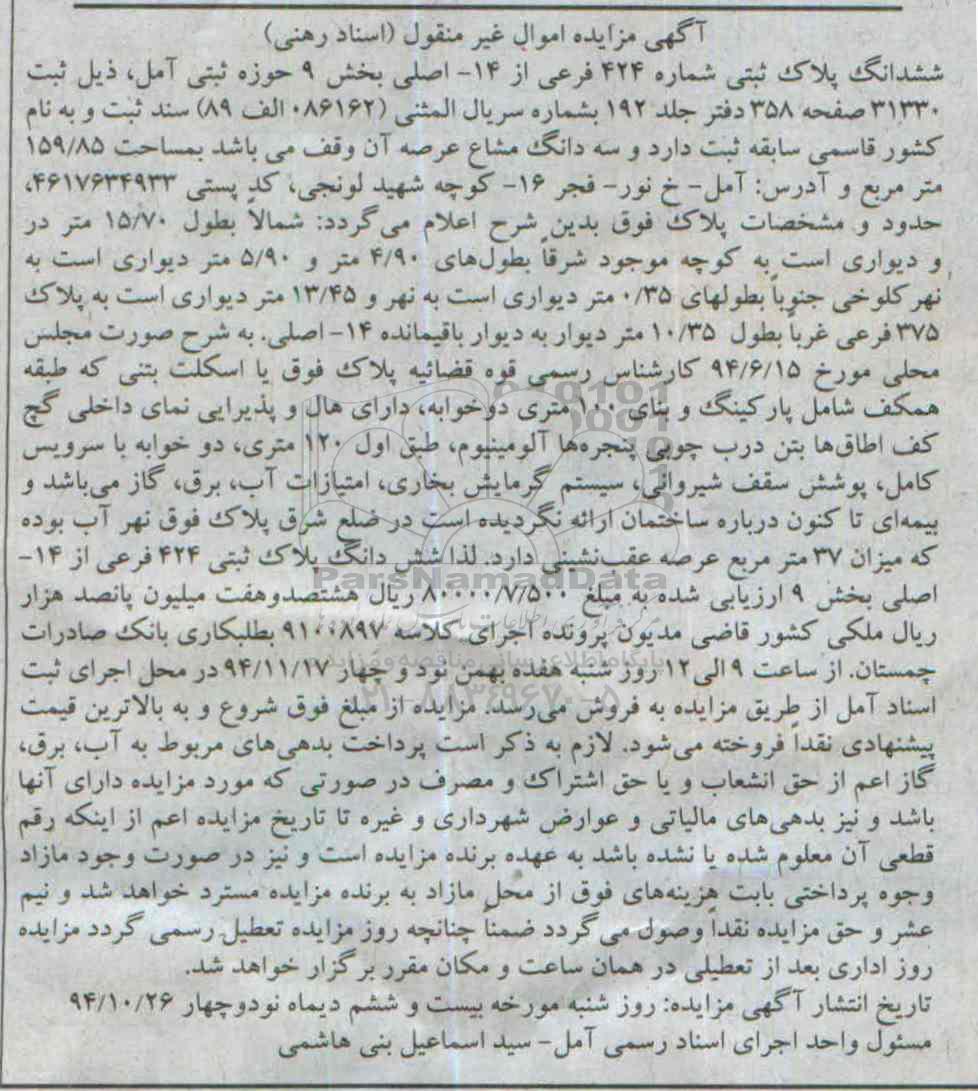 آگهی مزایده اموال غیر منقول (اسناد رهنی)
ششدانگ پلاک ثبتی شماره ۴۲۴ فرعی از ۱۴- اصلی بخش ۹ حوزه ثبتی آمل، ذیل ثبت
۳۱۳۳۰ صفحه ۳۵۸ دفتر جلد ۱۹۲ بشماره سریال المثنی (۰۸۶۱۶۲ الف ۸۹) سند ثبت و به نام
کشور قاسمی سابقه ثبت دارد و سه دانگ مشاع عرصه آن وقف می باشد بمساحت ۱۵۹/۸۵
متر مربع و آدرس: آمل- خ نور- فجر ۱۶- کوچه شهید لونجی، کد پستی ۴۶۱۷۶۳۴۹۳۳،
حدود و مشخصات پلاک فوق بدین شرح اعلام می‌گردد: شمالاً بطول ۱۵/۷۰ متر در
و دیواری است به کوچه موجود شرقاً بطول‌های ۴/۹۰ متر و ۵/۹۰ متر دیواری است به
نهر کلوخی جنوباً بطولهای ۰/۳۵ متر دیواری است به نهر و ۱۳/۴۵ متر دیواری است به پلاک
۳۷۵ فرعی غرباً بطول ۱۰/۳۵ متر دیوار به دیوار باقیمانده ۱۴- اصلی. به شرح صورت مجلس
محلی مورخ ۹۴/۶/۱۵ کارشناس رسمی قوه قضائیه پلاک فوق یا اسکلت بتنی که طبقه
همکف شامل پارکینگ و بنای ۱۰۰ متری دوخوابه، دارای هال و پذیرایی نمای داخلی گچ
کف اطاق‌ها بتن درب چوبی پنجره‌ها آلومینیوم، طبق اول ۱۲۰ متری، دو خوابه با سرویس
کامل، پوشش سقف شیروانی، سیستم گرمایش بخاری، امتیازات آب، برق، گاز می‌باشد و
بیمه‌ای تا کنون درباره ساختمان ارائه نگردیده است در ضلع شرق پلاک فوق نهر آب بوده
که میزان ۳۷ متر مربع عرصه عقب‌نشینی دارد. لذا شش دانگ پلاک ثبتی ۴۲۴ فرعی از ۱۴-
اصلی بخش ۹ ارزیابی شده به مبلغ ۸۰۰۰۰/۷/۵۰۰ ریال هشتصدوهفت میلیون پانصد هزار
ریال ملکی کشور قاضی مدیون پرونده اجرای کلاسه ۹۱۰۰۸۹۷ بطلبکاری بانک صادرات
چمستان. از ساعت ۹ الی ۱۲ روز شنبه هفده بهمن نود و چهار ۹۴/۱۱/۱۷ در محل اجرای ثبت
اسناد آمل از طریق مزایده به فروش می‌رسد. مزایده از مبلغ فوق شروع و به بالاترین قیمت
پیشنهادی نقداً فروخته می‌شود. لازم به ذکر است پرداخت بدهی‌های مربوط به آب، برق،
گاز اعم از حق انشعاب و یا حق اشتراک و مصرف در صورتی که مورد مزایده دارای آنها
باشد و نیز بدهی‌های مالیاتی و عوارض شهرداری و غیره تا تاریخ مزایده اعم از اینکه رقم
قطعی آن معلوم شده یا نشده باشد به عهده برنده مزایده است و نیز در صورت وجود مازاد
وجوه پرداختی بابت هزینه‌های فوق از محل مازاد به برنده مزایده مسترد خواهد شد و نیم
عشر و حق مزایده نقداً وصول می گردد ضمناً چنانچه روز مزایده تعطیل رسمی گردد مزایده
روز اداری بعد از تعطیلی در همان ساعت و مکان مقرر برگزار خواهد شد.
تاریخ انتشار آگهی مزایده: روز شنبه مورخه بیست و ششم دیماه نودوچهار ۹۴/۱۰/۲۶
مسئول واحد اجرای اسناد رسمی آمل- سید اسماعیل بنی هاشمی
ParsNamadData